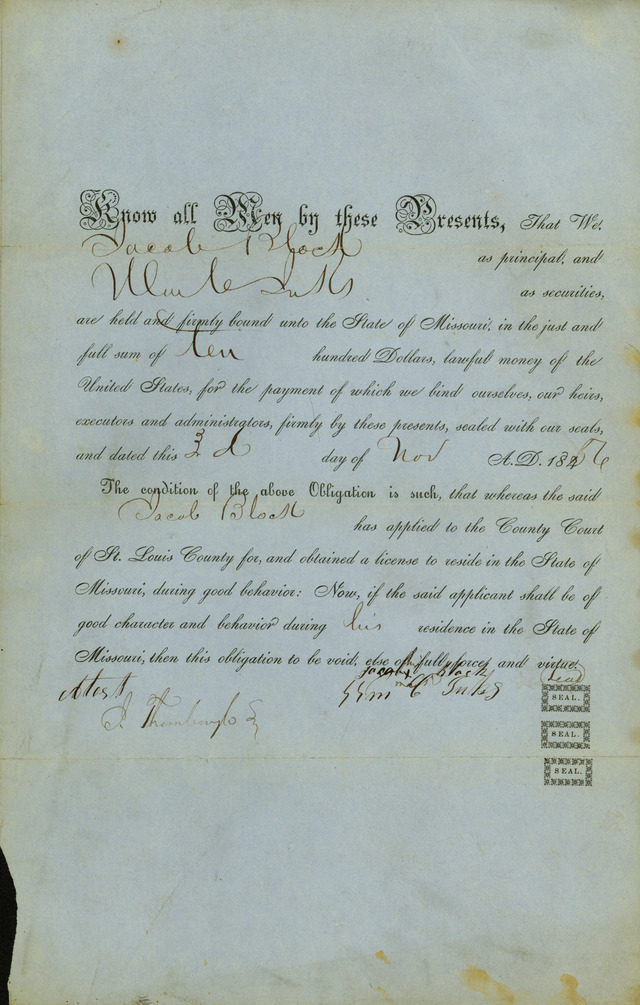 Know all Men by these Presents, That We,
Jacob Block as principal, and
Wm C as securities,
are held and firmly bound unto the State of Missouri, in the just and
full sum of ten hundred Dollars, lawful money of the
United States, for the payment of which we bind ourselves, our heirs,
executors and administrators, firmly by these presents, sealed with our seals,
and dated this 3 d day of Nov A.D. 1856
The condition of the above Obligation is such, that whereas the said
Jacob Block has applied to the County Court
of St. Louis County for, and obtained a license to reside in the State of
Missouri, during good behavior: Now, if the said applicant shall be of
good character and behavior during his residence in the State of
Missouri, then this obligation to be void, else of full force and virtue.
Jacob Block
Attest Wm C SEAL.
SEAL.
SEAL.